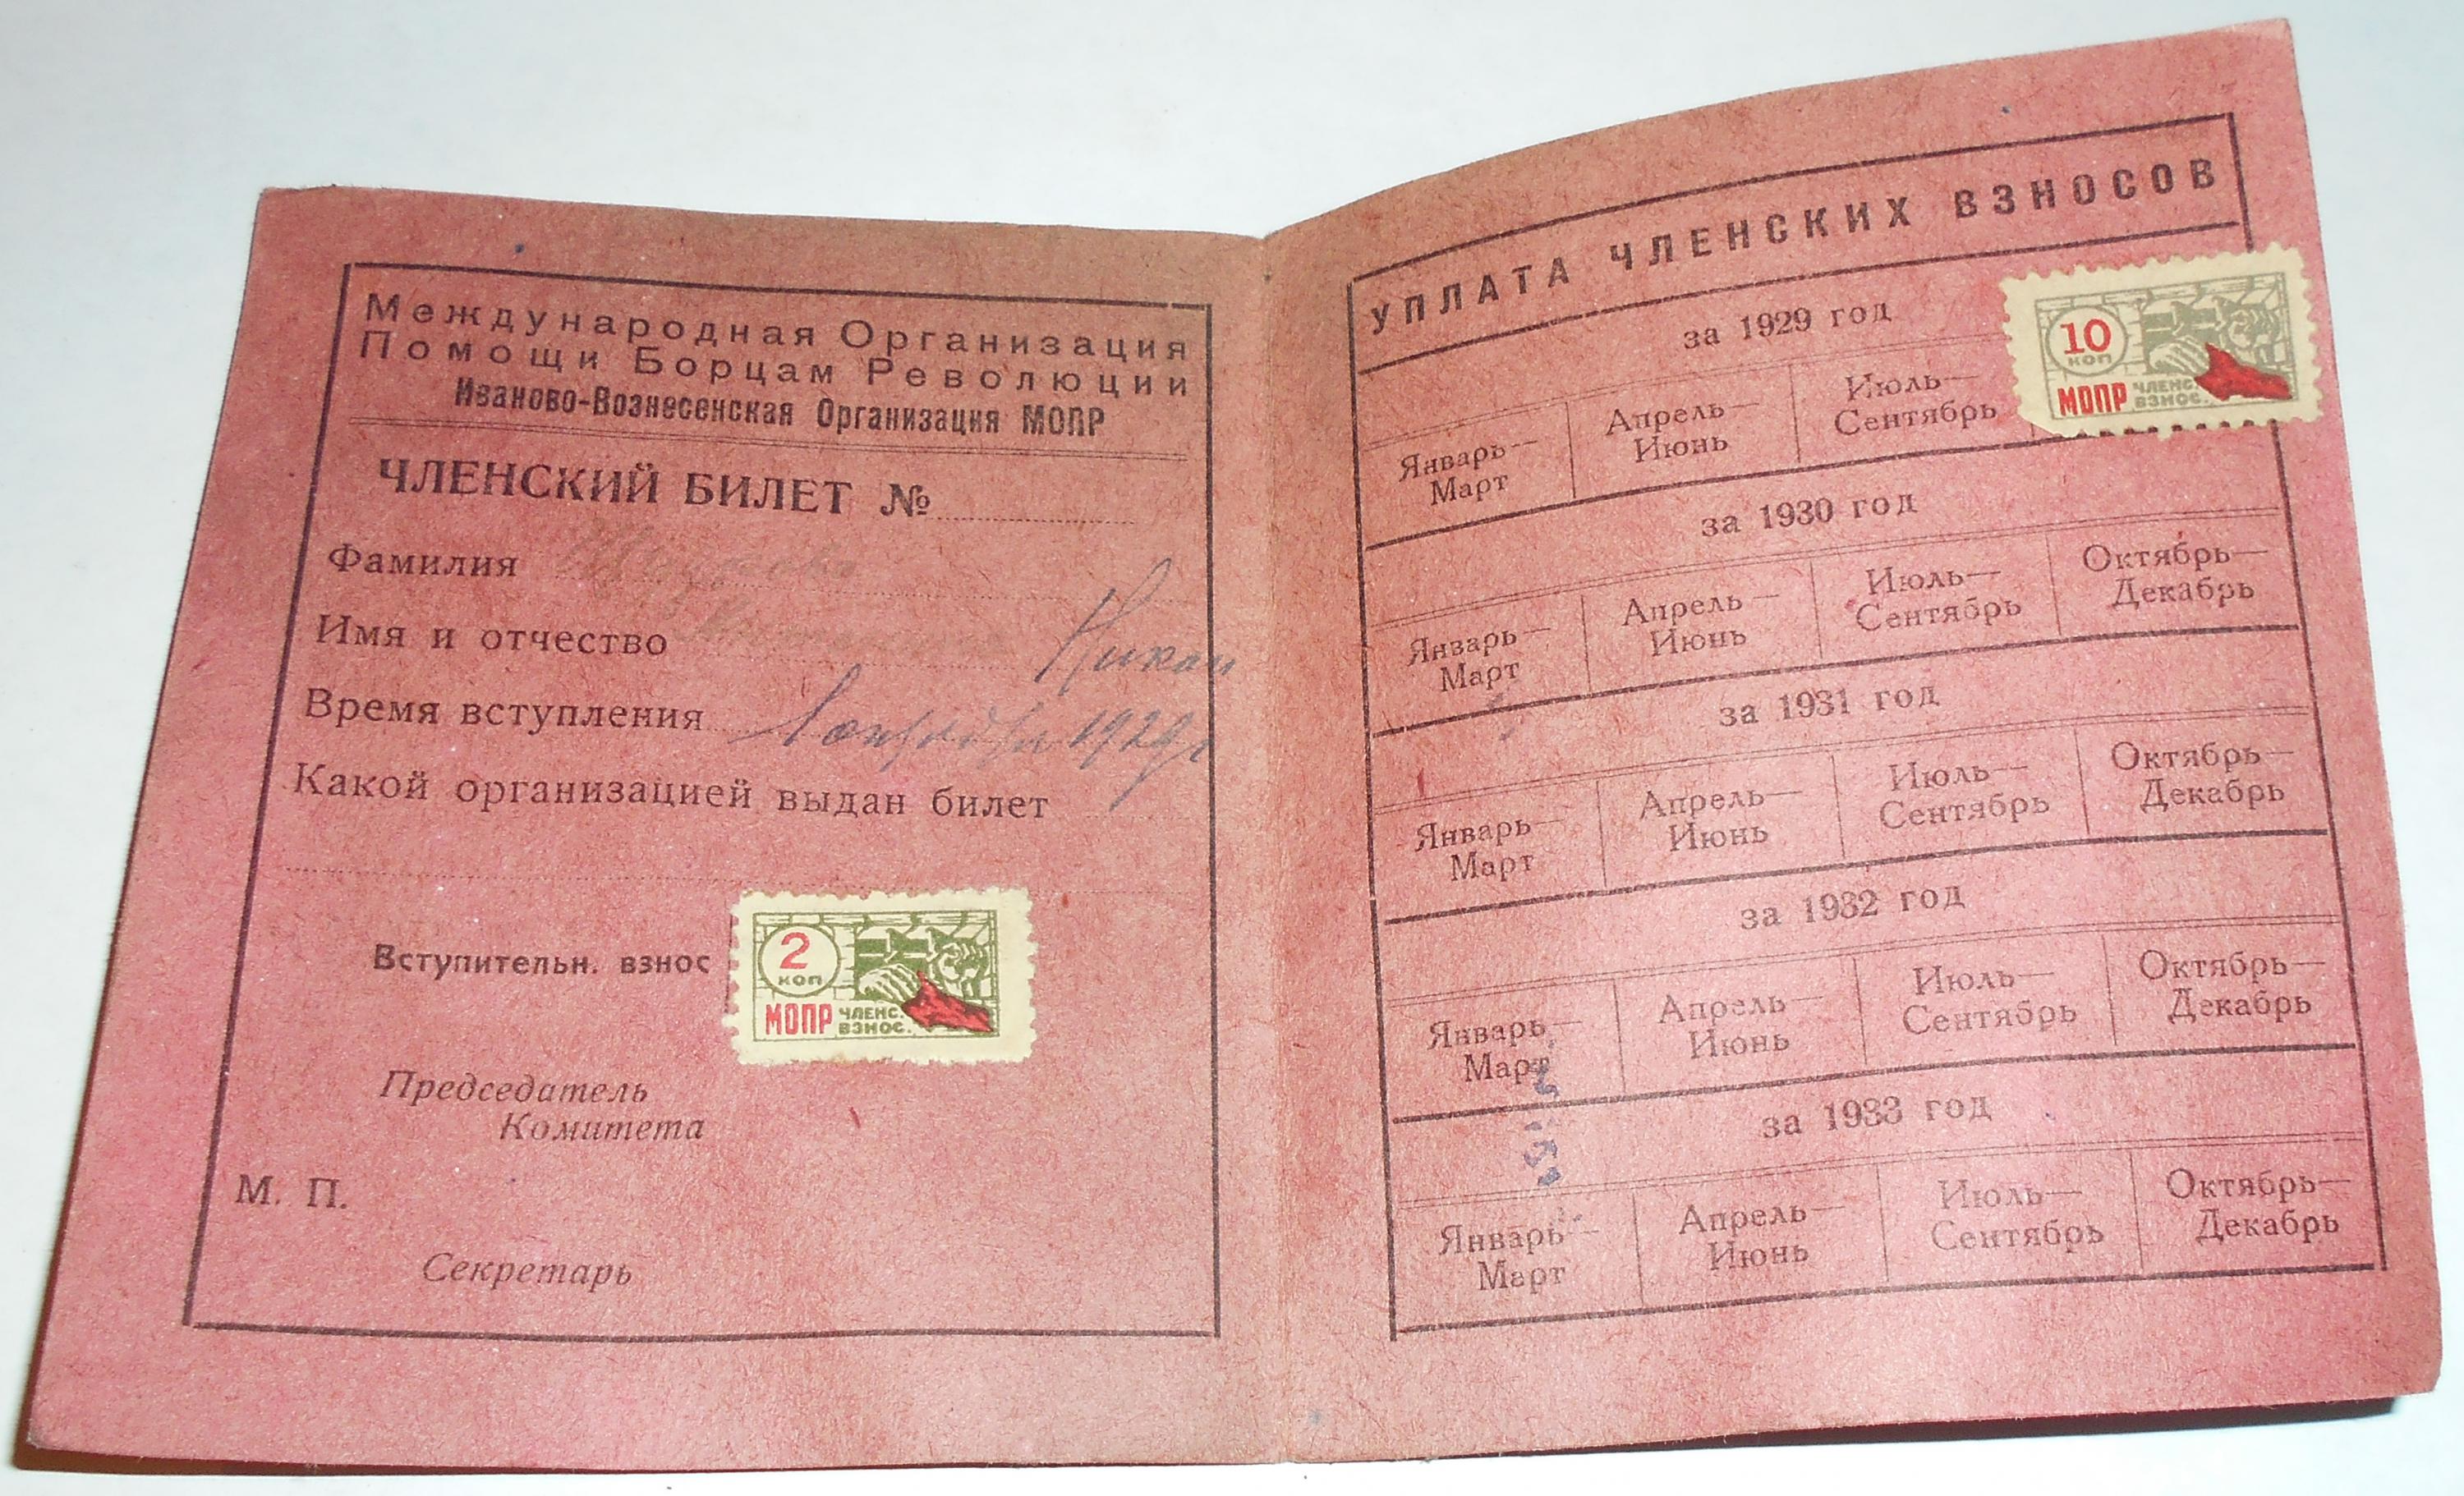 Международная Организация
Помощи Борцам Революции
Иваново-Вознесенская Организация МОПР
ЧЛЕНСКИЙ БИЛЕТ №
Фамилия
Имя и отчество
Время вступления 1 октября 1929 г
Какой организацией выдан билет
Вступительн. взнос
2
КОП
МОПР ЧЛЕНС.
ВЗНОС.
Председатель
Комитета
М. П.
Секретарь
УПЛАТА ЧЛЕНСКИХ ВЗНОСОВ
за 1929 год
Январь—
Март
Апрель—
Июнь
Июль—
Сентябрь
10
КОП
МОПР ЧЛЕНС.
ВЗНОС.
за 1930 год
Январь—
Март
Апрель—
Июнь
Июль—
Сентябрь
Октябрь—
Декабрь
за 1931 год
Январь—
Март
Апрель—
Июнь
Июль—
Сентябрь
Октябрь—
Декабрь
за 1932 год
Январь—
Март
Апрель—
Июнь
Июль—
Сентябрь
Октябрь—
Декабрь
за 1933 год
Январь—
Март
Апрель—
Июнь
Июль—
Сентябрь
Октябрь—
Декабрь